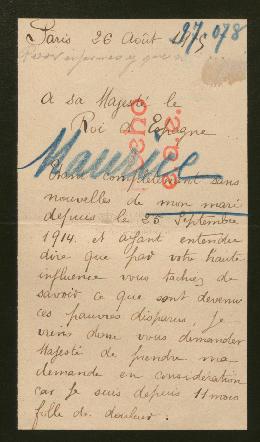 Paris 26 Août 1915
27-078
A sa Majesté le
Roi d'Espagne
Maurice
Etant complètement sans
nouvelles de mon mari
depuis le 25 Septembre
1914. et ayant entendu
dire que par votre haute
influence vous tachez de
savoir ce que sont devenus
ces pauvres disparus, Je
viens donc vous demander
Majesté de prendre ma
demande en considération
car je suis depuis 11 mois
folle de douleur.